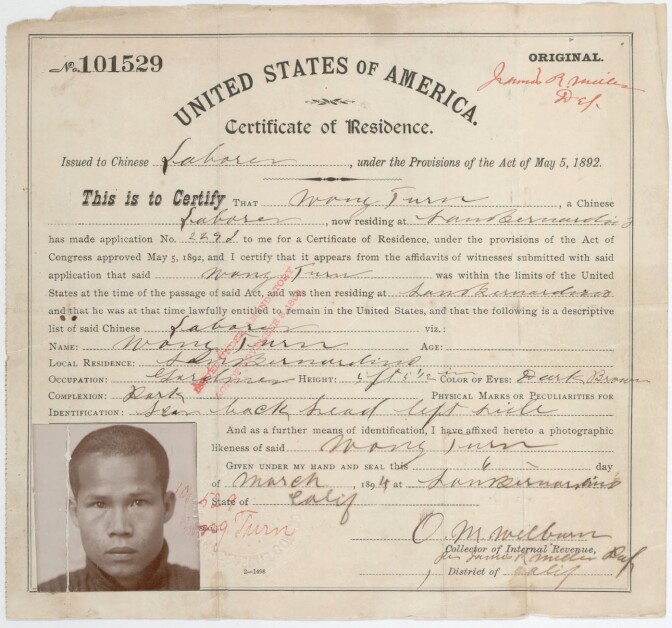 No. 101529
ORIGINAL.
James R. Miller
Dep.
UNITED STATES OF AMERICA.
Certificate of Residence.
Issued to Chinese Laborer, under the Provisions of the Act of May 5, 1892.
This is to Certify THAT Wong Turn, a Chinese
Laborer, now residing at San Bernardino
has made application No. to me for a Certificate of Residence, under the provisions of the Act of
Congress approved May 5, 1892, and I certify that it appears from the affidavits of witnesses submitted with said
application that said Wong Turn was within the limits of the United
States at the time of the passage of said Act, and was then residing at San Bernardino
and that he was at that time lawfully entitled to remain in the United States, and that the following is a descriptive
list of said Chinese Laborer viz.:
NAME: Wong Turn AGE:
LOCAL RESIDENCE: San Bernardino
OCCUPATION: Gardner HEIGHT: COLOR OF EYES: Dark Brown
COMPLEXION: Dark PHYSICAL MARKS OR PECULIARITIES FOR
IDENTIFICATION: Scar back head left side
And as a further means of identification, I have affixed hereto a photographic
likeness of said Wong Turn
GIVEN UNDER MY HAND AND SEAL this 6 day
of March, 1894, at San Bernardino
State of Calif
Turn
O. M. Welburn
Collector of Internal Revenue,
per James R Miller Dep
District of Calif
2—1606